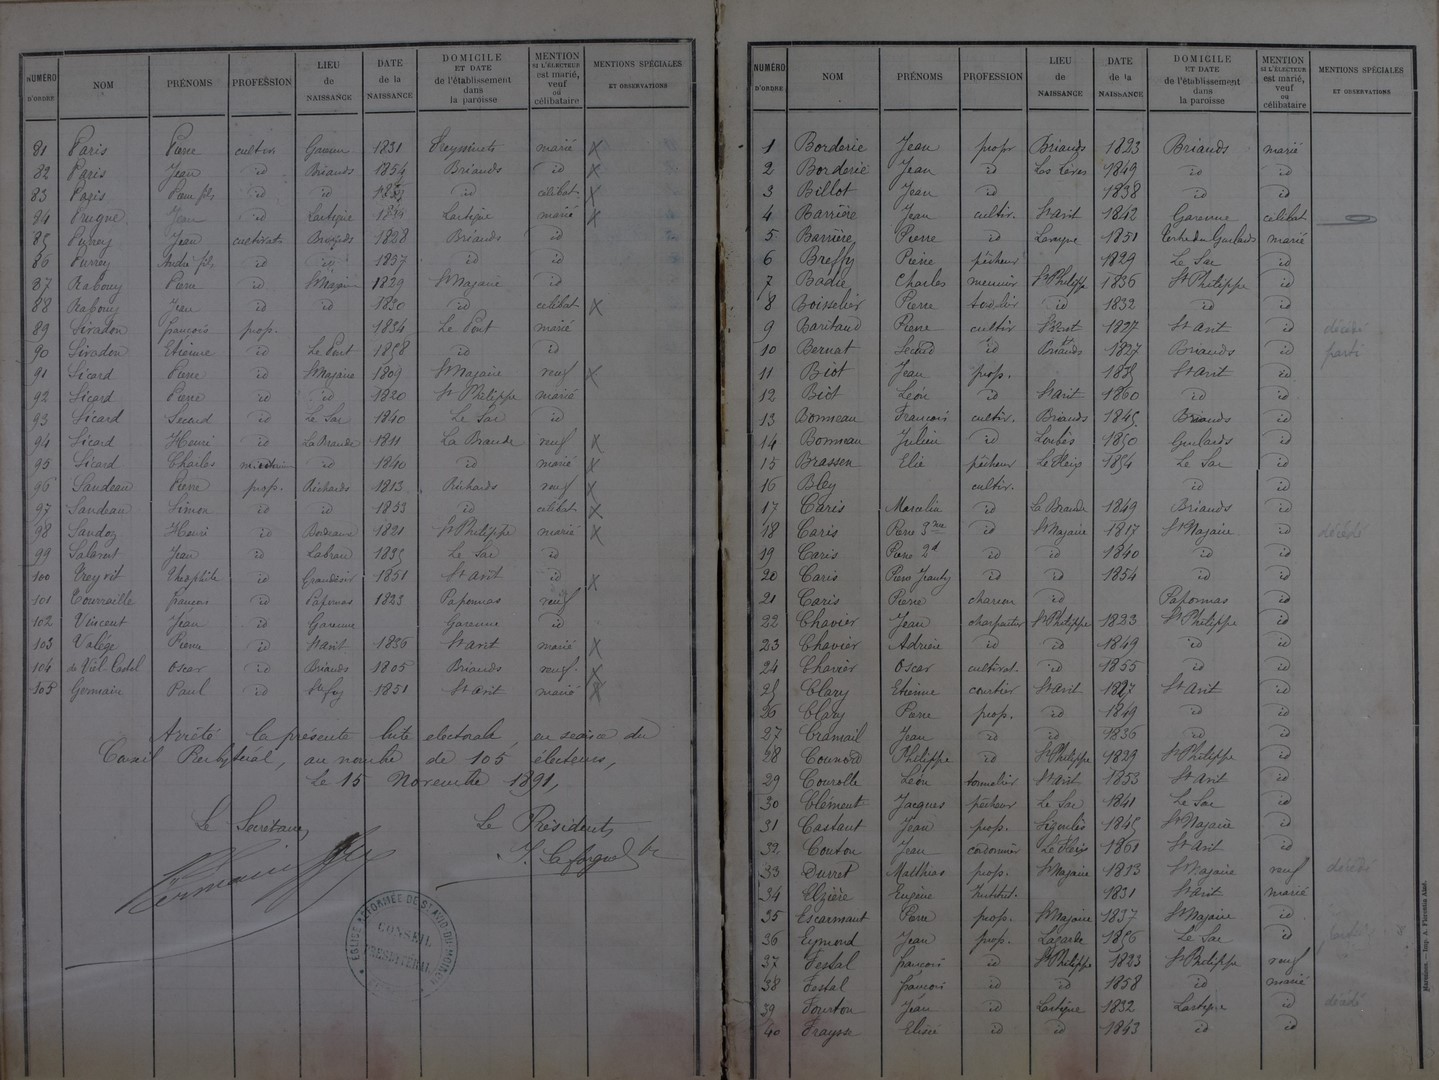 NUMÉRO D'ORDRE NOM PRÉNOMS PROFESSION LIEU de NAISSANCE DATE de la NAISSANCE DOMICILE ET DATE de l'établissement dans la paroisse MENTION SI L'ÉLECTEUR est marié, veuf ou célibataire MENTIONS SPÉCIALES ET OBSERVATIONS
81 Paris Pierre cultivr 1831 marié X
82 Paris Jean id Briands 1854 Briands id X
83 Paris Pierre fils id id id célibat. X
84 Jean id Lartigue Lartigue marié X
85 Purrey Jean cultivat. 1828 Briands id
86 Purrey André fils id id 1857 id id
87 Rabouy Pierre id St Nazaire 1829 St Nazaire id
88 Rabouy Jean id id 1830 id célibat X
89 Siradon François prop. 1834 Le Pont marié
90 Siradon Etienne id Le Pont 1858 id id
91 Sicard Pierre id St Nazaire 1809 St Nazaire veuf X
92 Sicard Pierre id id 1820 St Philippe marié
93 Sicard Second id Le Sar 1840 Le Sar id
94 Sicard Henri id La Brande 1811 La Brande veuf X
95 Sicard Charles id 1840 id marié X
96 Sandeau Pierre prop. Richards 1813 Richards veuf X
97 Sandeau Simon id id 1833 id célibat X
98 Sandoz Henri id Bordeaux 1821 St Philippe marié X
99 Jean id 1835 Le Sar id
100 Treyvit Théophile id 1851 St Avit id X
101 Tourraille François id Paponnas 1823 Paponnas veuf
102 Vincent Jean id Garenne Garenne id
103 Valége Pierre id St Avit 1836 St Avit marié X
104 de Viel Castel Oscar id Briands 1805 Briands veuf. X
105 Germain Paul id Ste Foy 1851 St Avit marié X
Arrêté la présente liste électorale, en séance du
Conseil Presbytéral, au nombre de 105 électeurs,
le 15 Novembre 1891,
Le Secrétaire, Le Président,
Germain
EGLISE RÉFORMÉE DE St AVID DU MOIRON
CONSEIL
PRESBYTÉRAL
NUMÉRO D'ORDRE NOM PRÉNOMS PROFESSION LIEU de NAISSANCE DATE de la NAISSANCE DOMICILE ET DATE de l'établissement dans la paroisse MENTION SI L'ÉLECTEUR est marié, veuf ou célibataire MENTIONS SPÉCIALES ET OBSERVATIONS
1 Borderie Jean propr Briands 1823 Briands marié
2 Borderie Jean id Les Lèves 1849 id id
3 Billot Jean id 1838 id id
4 Barrière Jean cultiv. St Avit 1842 Garenne célibat
5 Barrière Pierre id 1851 marié
6 Breffy Pierre pêcheur 1829 Le Sar id
7 Badie Charles meunier St Philippe 1836 St Philippe id
8 Boisselier Pierre id 1832 id id
9 Baritaud Pierre cultivr 1827 St Avit id décédé
10 Bernat Second id Briands 1827 Briands id parti
11 Biot Jean prop. 1835 St Avit id
12 Biot Léon id St Avit 1860 id id
13 Bonneau François cultiv. Briands 1845 Briands id
14 Bonneau Julien id 1850 Goulards id
15 Brassen Elie pêcheur 1854 Le Sar id
16 Bley cultiv. id id
17 Caris Marcelin id La Brande 1849 Briands id
18 Caris Pierre 3me id St Nazaire 1817 St Nazaire id décédé
19 Caris Pierre 2d id id 1840 id id
20 Caris Pierre Jeanty id id 1854 id id
21 Caris Pierre charron id Paponnas id
22 Chavier Jean charpentier St Philippe 1823 St Philippe id
23 Chavier Adrien id id 1849 id id
24 Chavier Oscar cultivat. id 1855 id id
25 Clary Etienne courtier St Avit 1827 St Avit id
26 Clary Pierre prop. id 1849 id id
27 Cramail Jean id id 1836 id id
28 Counord Philippe id St Philippe 1829 St Philippe id
29 Courolle Léon tonnelier St Avit 1853 St Avit id
30 Clément Jacques pêcheur Le Sar 1841 Le Sar id
31 Castaut Jean prop. 1845 St Nazaire id
32 Couton Jean cordonnier 1861 St Avit id
33 Durret Matthias prop. St Nazaire 1813 St Nazaire veuf décédé
34 Elzière Eugène Institut. 1831 St Avit marié
35 Escarmant Pierre prop. St Nazaire 1837 St Nazaire id
36 Eymond Jean prop. Lagarde 1856 Le Sar id
37 Festal François id St Philippe 1823 St Philippe veuf
38 Festal François id id 1858 id marié
39 Fourton Jean id Lartigue 1832 Lartigue id décédé
40 Fraysse Elisée id id 1843 id id
Marmande. — Imp. A. Florentin Aîné.